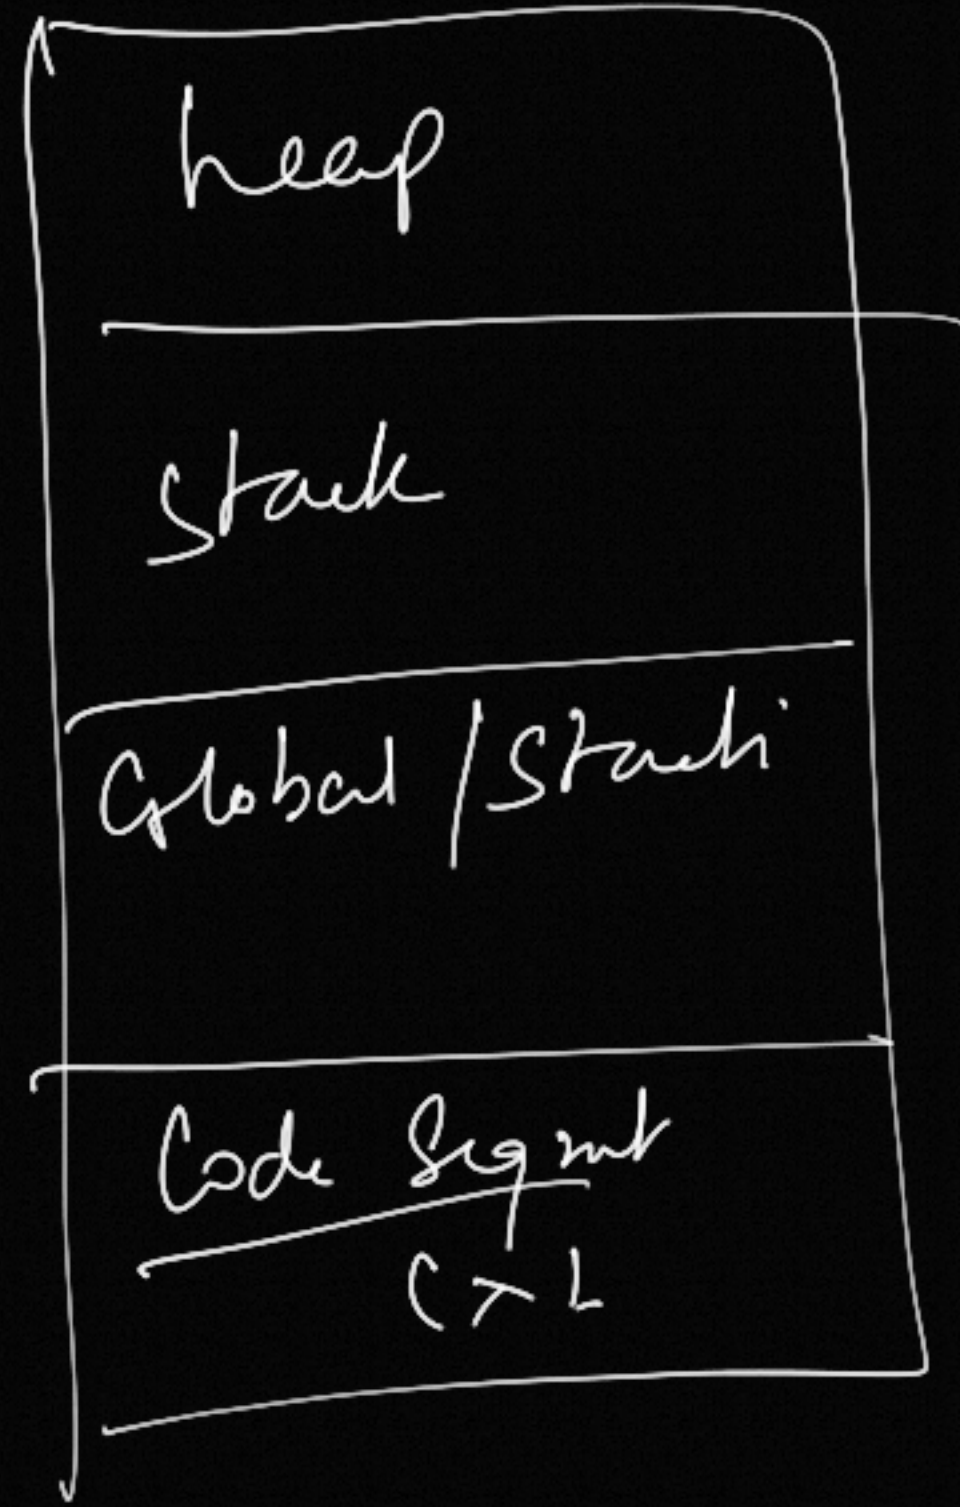 heap
Stack
Global / Stati
Code Segmt